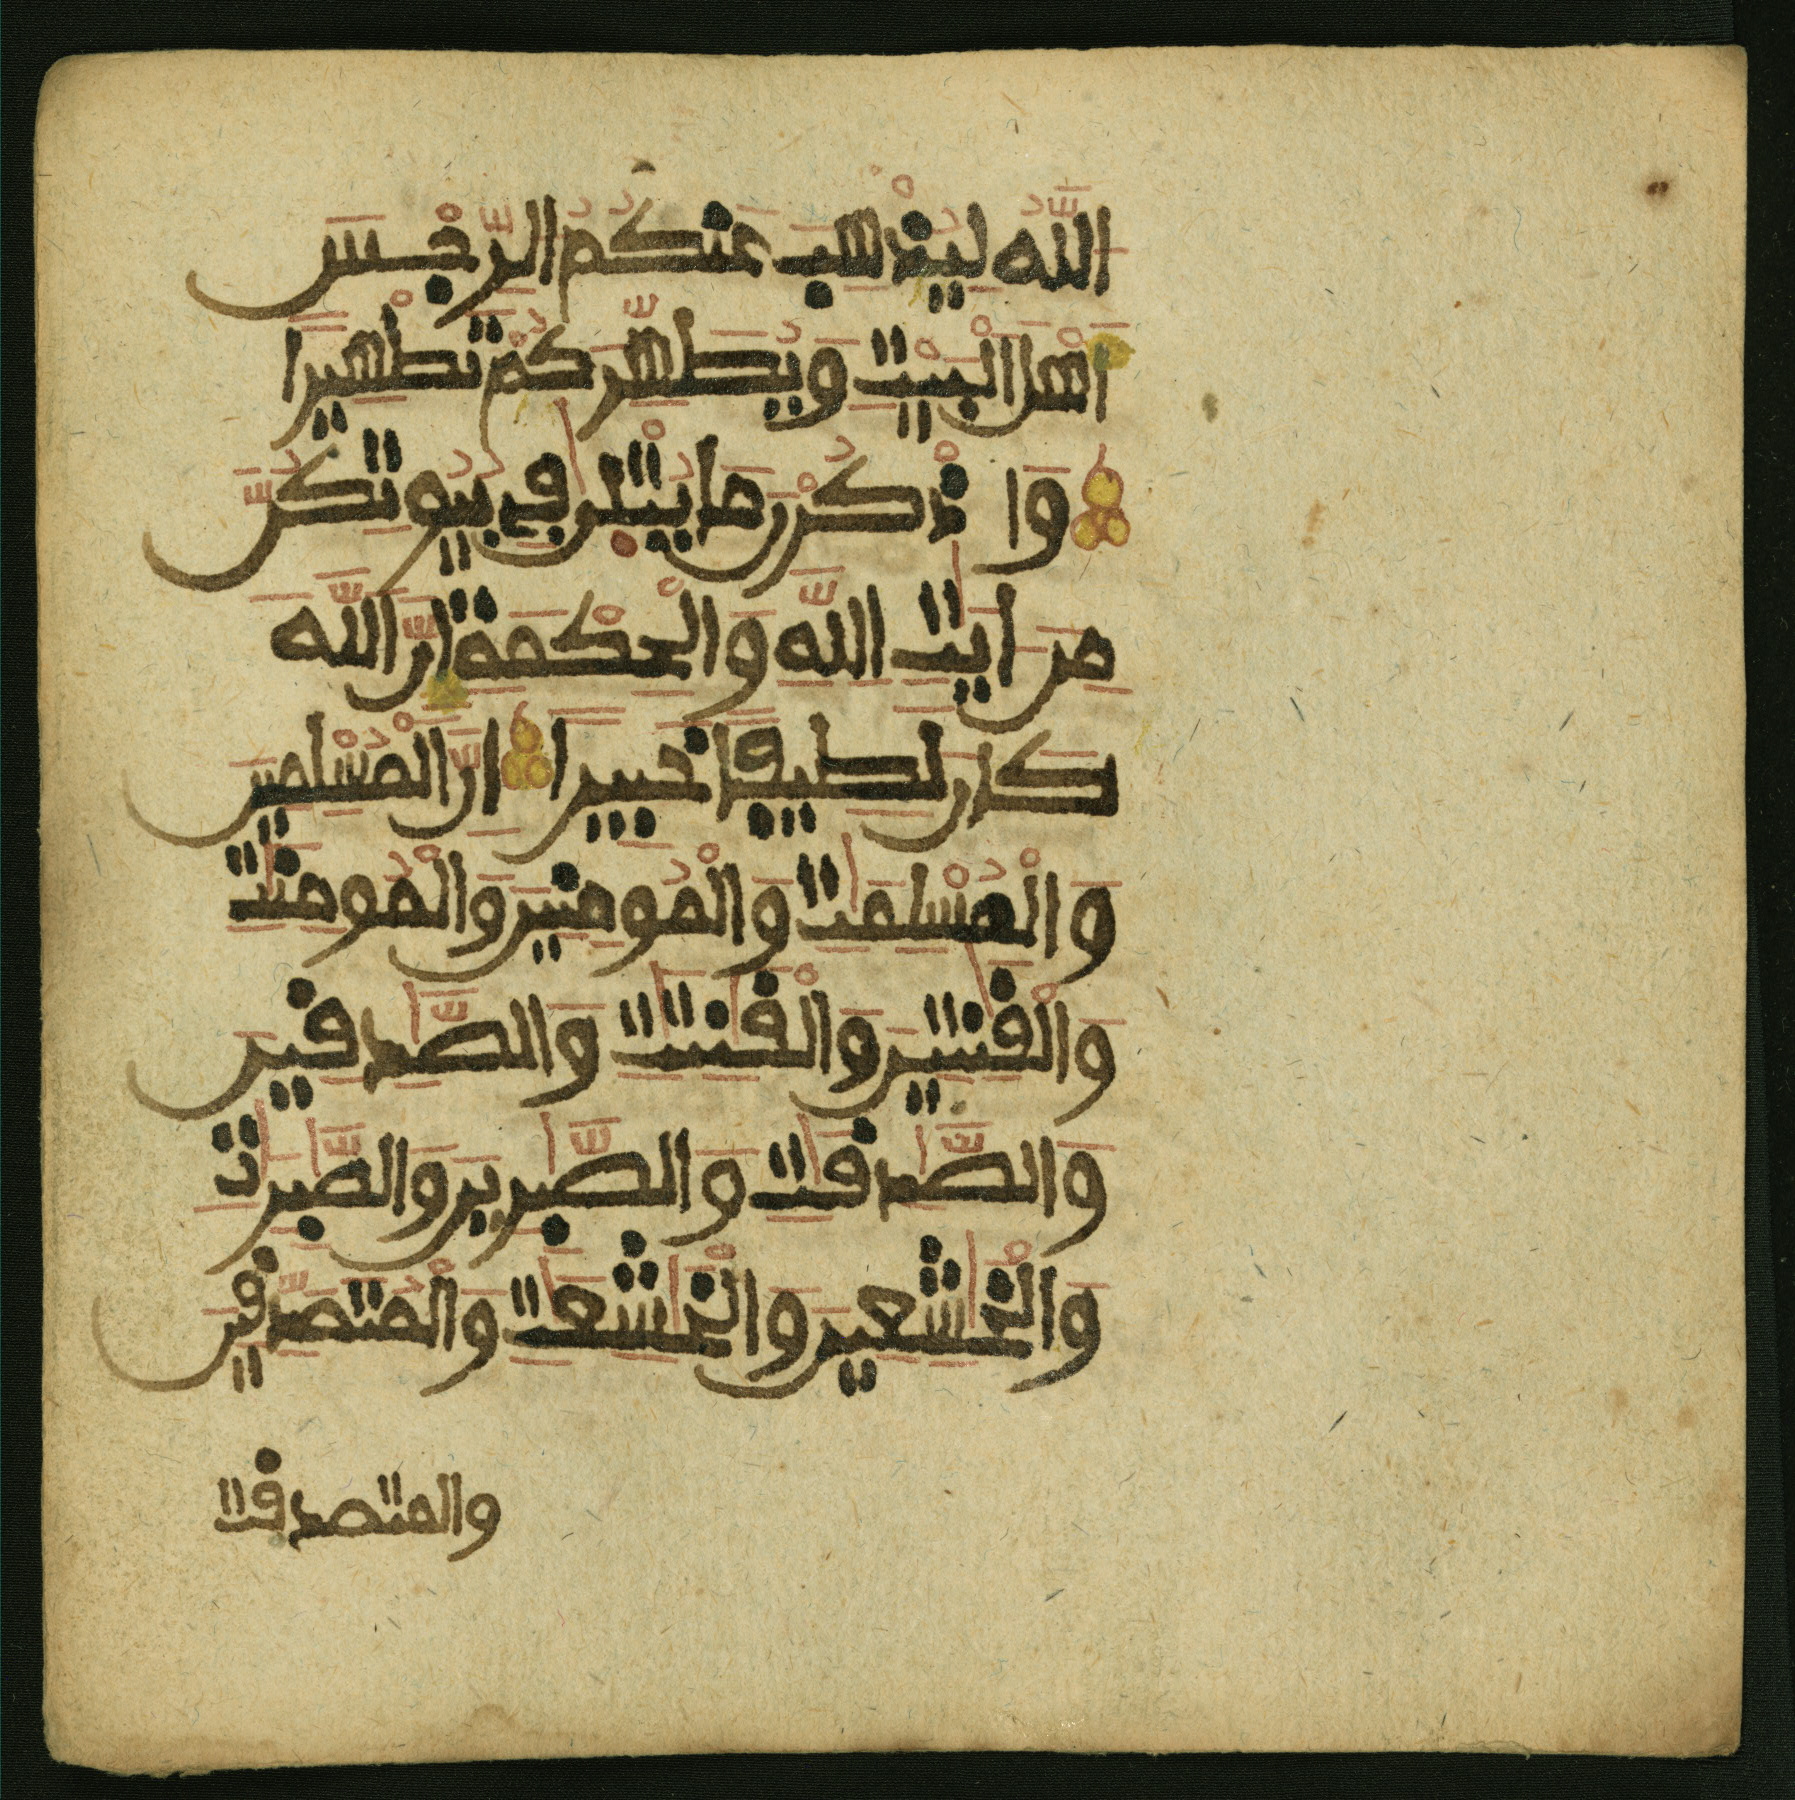 اللَّهُ لِيُذْهِبَ عَنكُمُ الرِّجْسَ
أَهْلَ الْبَيْتِ وَيُطَهِّرَكُمْ تَطْهِيرًا
وَاذْكُرْنَ مَا يُتْلَى فِي بُيُوتِكُنَّ
مِنْ ءَايَٰتِ اللَّهِ وَالْحِكْمَةِ إِنَّ اللَّهَ
كَانَ لَطِيفًا خَبِيرًا إِنَّ الْمُسْلِمِينَ
وَالْمُسْلِمَٰتِ وَالْمُومِنِينَ وَالْمُومِنَٰتِ
وَالْقَٰنِتِينَ وَالْقَٰنِتَٰتِ وَالصَّٰدِقِينَ
وَالصَّٰدِقَٰتِ وَالصَّٰبِرِينَ وَالصَّٰبِرَٰتِ
وَالْخَٰشِعِينَ وَالْخَٰشِعَٰتِ وَالْمُتَصَدِّقِينَ
والمتصدقت